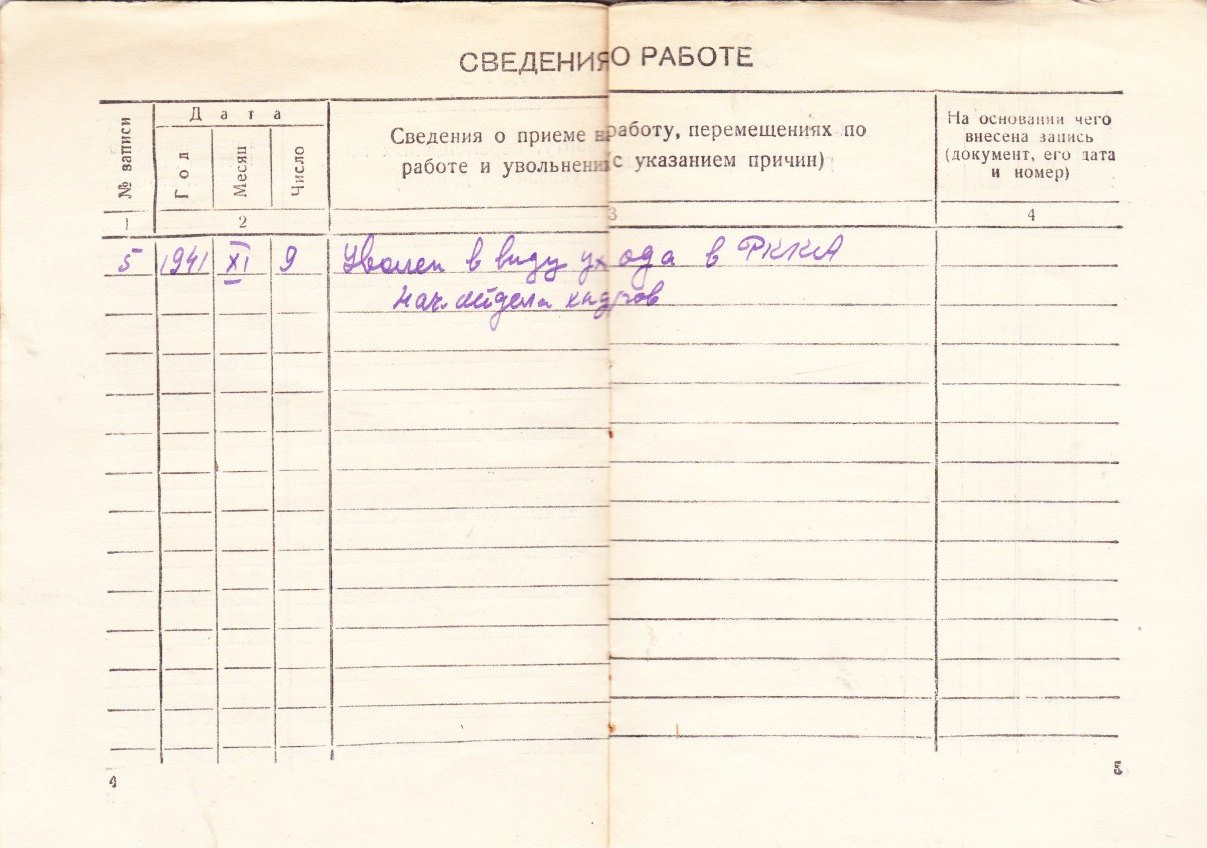 СВЕДЕНИЯ О РАБОТЕ
№ записи
Дата
Год
Месяц
Число
Сведения о приеме в работу, перемещениях по
работе и увольнени (с указанием причин)
На основании чего
внесена запись
(документ, его дата
и номер)
1 2 3 4
5 1941 XI 9 Уволен в виду ухода в РККА
Нач. отдела кадров
4 5